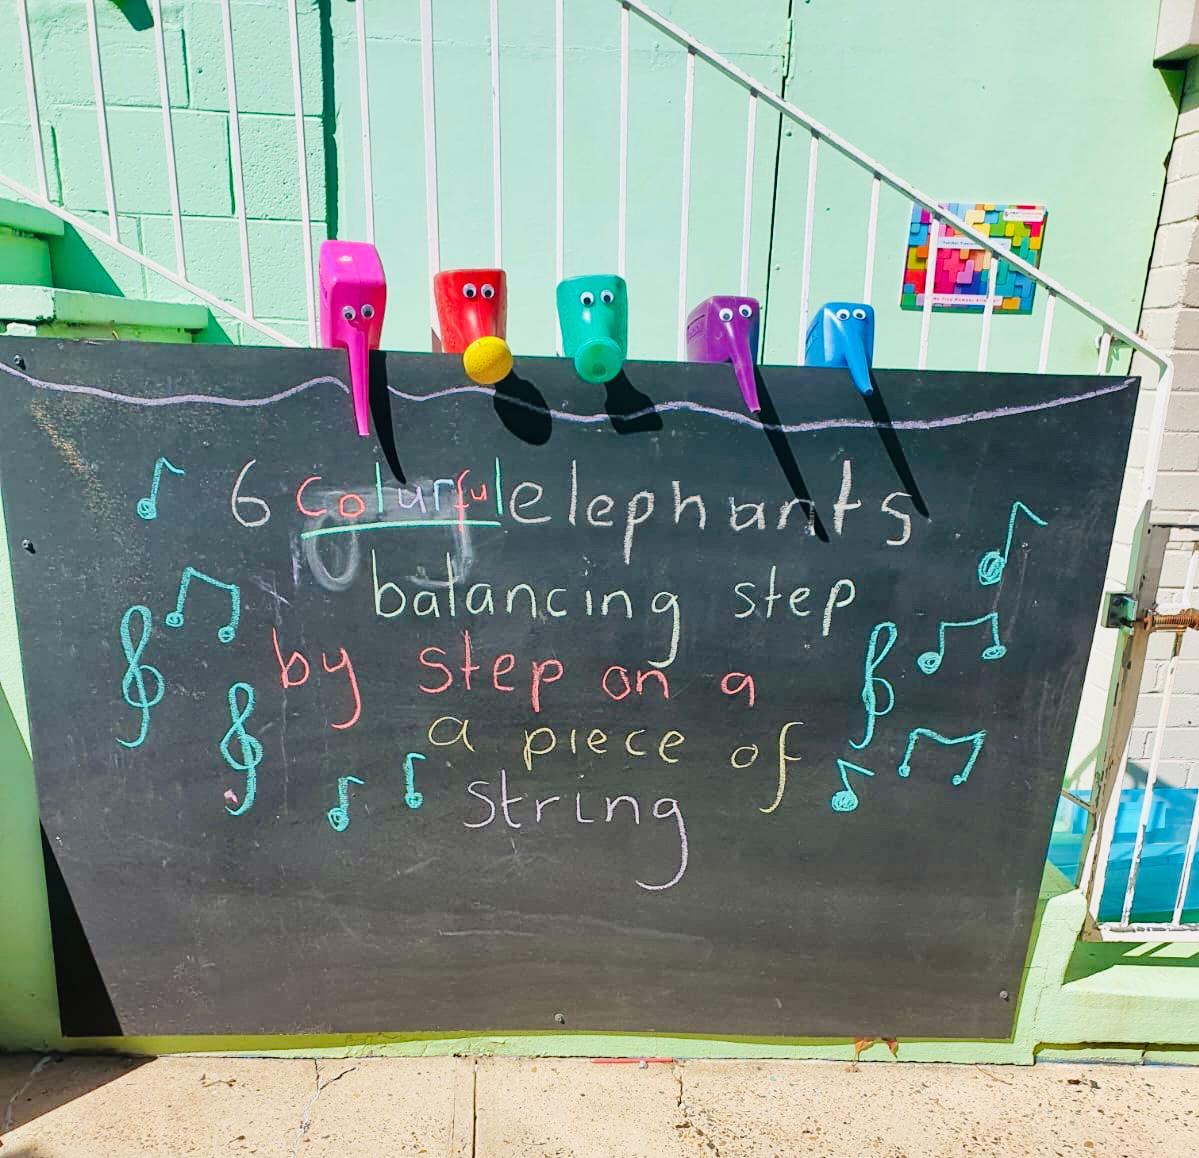 6 colurful elephants
balancing step
by step on a
a piece of
string